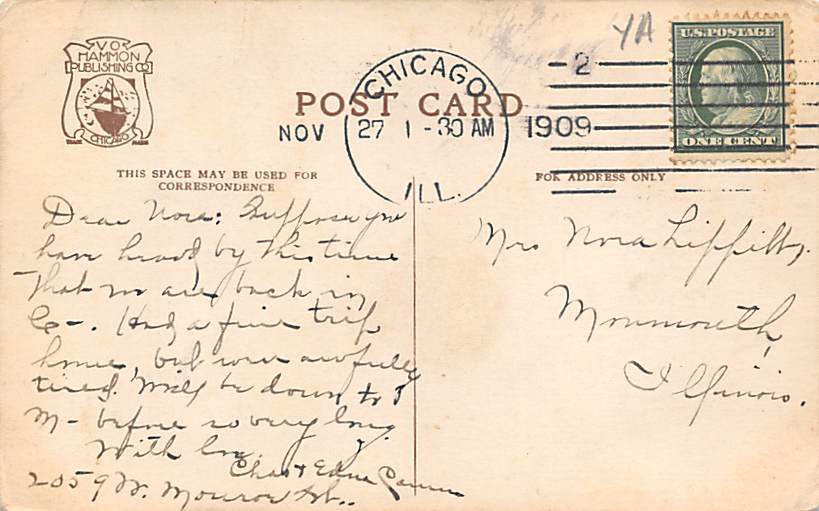 V O
HAMMON
PUBLISHING CO
CHICAGO
TRADE MARK
YA
U.S. POSTAGE
ONE CENT
CHICAGO
ILL.
NOV 27 1-30 AM 1909
2
POST CARD
THIS SPACE MAY BE USED FOR
CORRESPONDENCE
FOR ADDRESS ONLY
Dear Nora: Suppose you
have heard by this time
That we are back in
C-. Had a fine trip
home, but were awfully
tired. Will be down to
M- before so very long.
With love.
Chas & Edna
2059 W. Monroe St.
Mrs Nora Lippitt,
Monmouth,
Illinois.